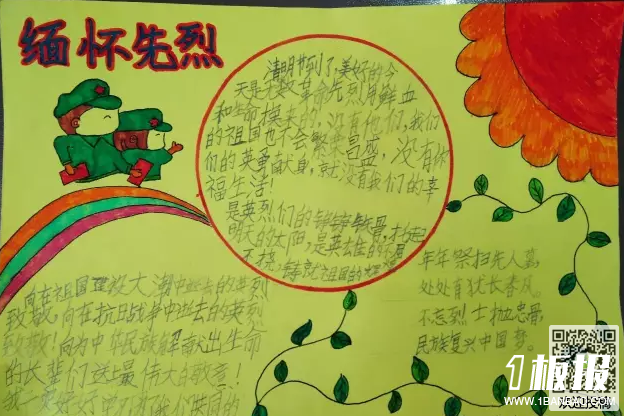 缅怀先烈
清明节到了,美好的今
天是无数革命先烈用鲜血
和生命换来的,没有他们,我们
的祖国也不会繁荣昌盛,没有他
们的英勇献身,就没有我们的幸
福生活!
是英烈们的铮铮铁骨,才
明天的太阳,是英雄的不屈
不挠,祖国的
向在祖国解放大潮中逝去的英烈
致敬,向在抗日战争中逝去的英烈
致敬!向为中华民族解献出生命
的长辈们送上最伟大的敬意!
我
年年祭扫先人墓,
处处有犹长春
不忘烈士抛忠骨,
民族复兴中国梦。
1板报
WWW.1BANBAO.COM